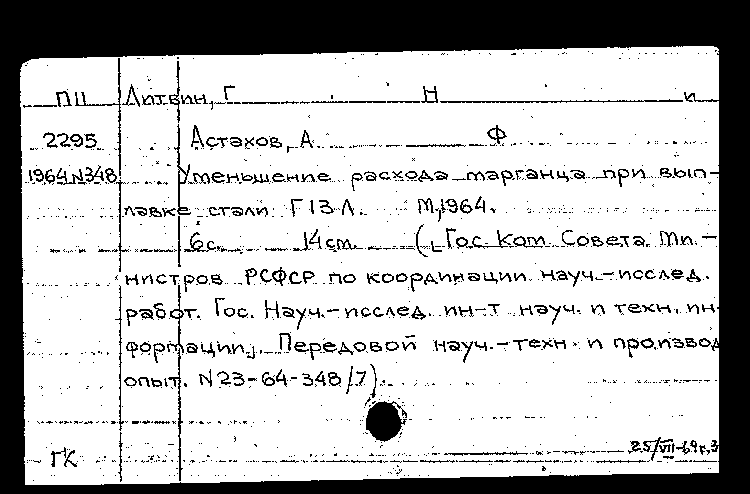 П11 Литвин, Г Н и
2295 Астахов, А Ф
1964 N348 Уменьшение расхода марганца при вып-
лавке стали Г13Л. М, 1964.
6с. 14см. ([Гос. Ком. Совета Ми-
нистров РСФСР по координации науч.-исслед.
работ. Гос. Науч.-исслед. ин-т науч. и техн. ин-
формации]. Передовой науч.-техн. и производ
опыт. N23-64-348/7).
ГК